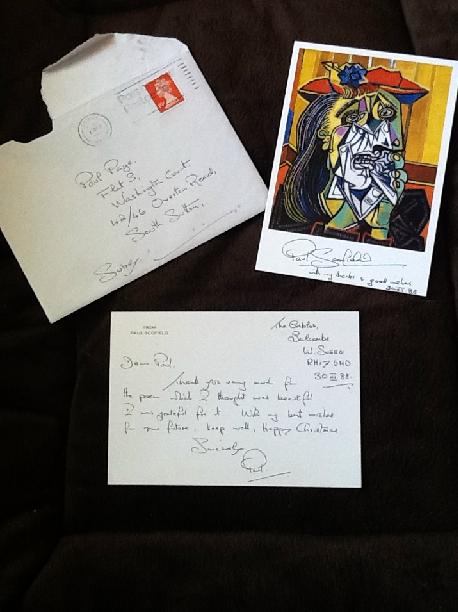 Paul Page,
Flat 3,
Washington Court
42/46 Overton Road,
South Sutton,
Surrey
Paul Scofield
with my thanks & good wishes
FROM
PAUL SCOFIELD
The Gables,
Balcombe
W. Sussex
RH17 6ND
30 III 88.
Dear Paul,
Thank you very much for
the poem which I thought was beautiful
I am grateful for it. With my best wishes
for your future. Keep well, Happy Christmas
Sincerely
Paul